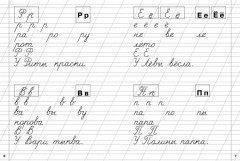 Рр Рр
р р р
ра ро ру
рот
Р Р Р
У Риты краски.
Её Ее Ёё
е ё е ё
не ве ле
лето
Е Ё Е
У Лёвы вёсла.
Вв Вв
в в в в
ва вы ву
корова
В В В
У Вари тыква.
Пп Пп
п п п
па по пы
папа
П П П
У Полины папка.